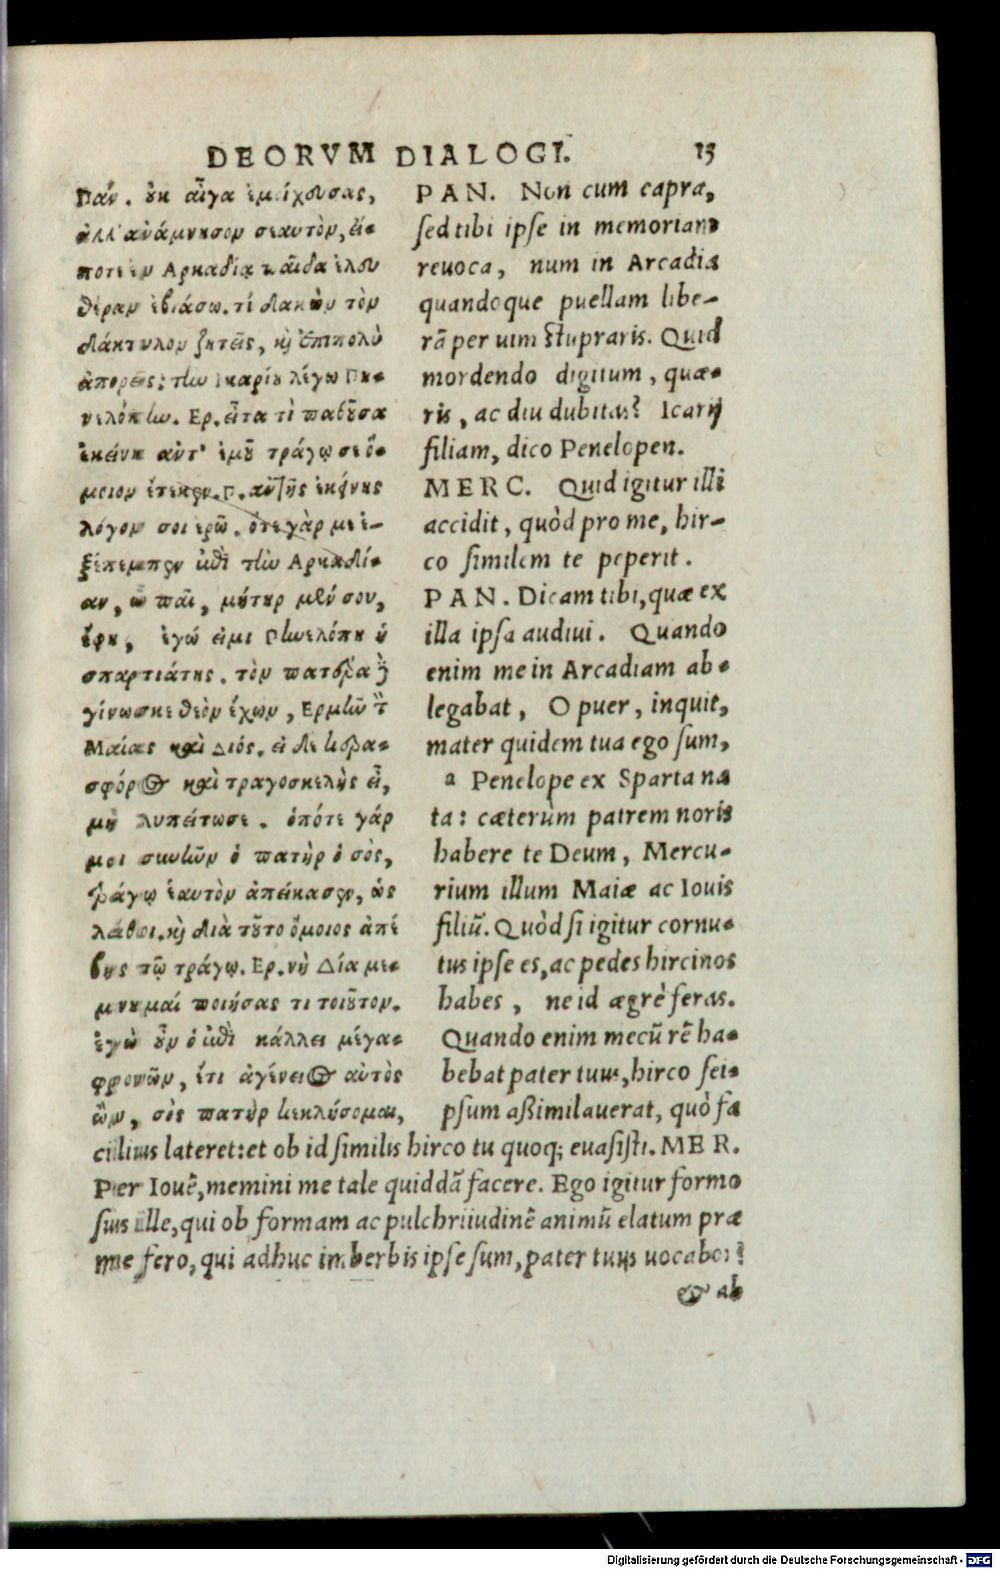 DEORVM DIALOGI. 15
Πάν. οὐκ αἶγα ἐμοίχευσας,
ἀλλ' ἀνάμνησον σεαυτὸν, εἴ-
ποτε ἐν Αρκαδίᾳ παῖδα ἐλευ
θέραν ἐβιάσω. τί δακὼν τὸν
δάκτυλον ζητεῖς, καὶ ἐπιπολὺ
ἀπορεῖς; τὴν Ικαρίου λέγω Πη-
νελόπην. Ερ. εἶτα τί παθοῦσα
ἐκείνη ἀντ' ἐμοῦ τράγῳ σε ὅ-
μοιον ἔτεκεν. Π. αὐτῆς ἐκείνης
λόγον σοι ἐρῶ. ὅτε γὰρ με ἐ-
ξέπεμπεν ἐπὶ τὴν Αρκαδί-
αν, ὦ παῖ, μήτηρ μέν σου,
ἔφη, ἐγώ εἰμι Πηνελόπη ἡ
σπαρτιάτης. τὸν πατέρα δὲ
γίνωσκε θεὸν ἔχων, Ερμῆν τὸν
Μαίας καὶ Διός. εἰ δὲ κερα-
σφόρος καὶ τραγοσκελὴς εἶ,
μὴ λυπείτω σε. ὁπότε γάρ
μοι συνῶν ὁ πατὴρ ὁ σὸς,
τράγῳ ἑαυτὸν ἀπείκασεν, ὡς
λάθοι. καὶ διὰ τοῦτο ὅμοιος ἀπέ
βης τῷ τράγῳ. Ερ. νὴ Δία μέ-
μνημαί ποιήσας τι τοιοῦτον.
ἐγὼ οὖν ὁ ἐπὶ κάλλει μέγα-
φρονῶν, ἔτι ἀγένειος αὐτὸς
ὢν, σὸς πατὴρ κεκλήσομαι,
PAN. Non cum capra,
sed tibi ipse in memoriam
reuoca, num in Arcadia
quandoque puellam libe-
rã per uim stupraris. Quid
mordendo digitum, quæ-
ris, ac diu dubitas? Icarij
filiam, dico Penelopen.
MERC. Quid igitur illi
accidit, quòd pro me, hir-
co similem te peperit.
PAN. Dicam tibi, quæ ex
illa ipsa audiui. Quando
enim me in Arcadiam ab-
legabat, O puer, inquit,
mater quidem tua ego sum,
a Penelope ex Sparta na
ta: cæterum patrem noris
habere te Deum, Mercu-
rium illum Maiæ ac Iouis
filiũ. Quòd si igitur cornu-
tus ipse es, ac pedes hircinos
habes, ne id ægrè feras.
Quando enim mecũ rẽ ha-
bebat pater tuus, hirco sei-
psum aßimilauerat, quò fa
cilius lateret: et ob id similis hirco tu quoq; euasisti. MER.
Per Iouẽ, memini me tale quiddã facere. Ego igitur formo
sus ille, qui ob formam ac pulchritudinẽ animũ elatum præ
me fero, qui adhuc imberbis ipse sum, pater tuus uocabor?
& ab
Digitalisierung gefördert durch die Deutsche Forschungsgemeinschaft - DFG